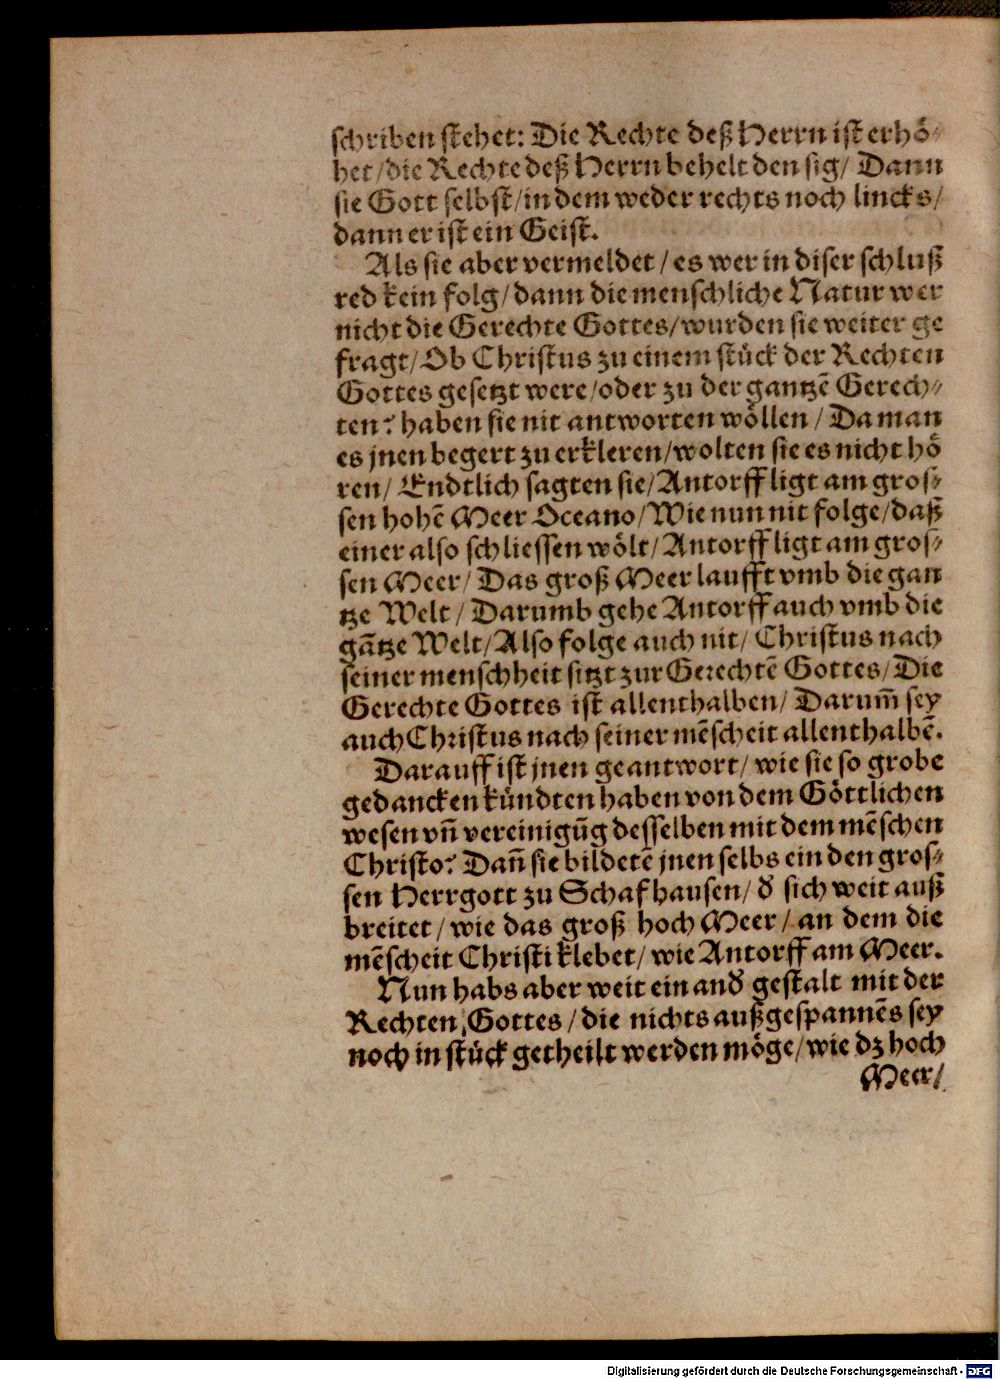 schriben stehet: Die Rechte deß Herrn ist erhö-
het/die Rechte deß Herrn behelt den sig/ Dann
sie Gott selbst/in dem weder rechts noch lincks/
dann er ist ein Geist.
Als sie aber vermeldet/es wer in diser schluß
red kein folg/dann die menschliche Natur wer
nicht die Gerechte Gottes/wurden sie weiter ge
fragt/Ob Christus zu einem stück der Rechten
Gottes gesetzt were/oder zu der gantzē Gerech-
ten? haben sie nit antworten wöllen/Da man
es jnen begert zu erkleren/wolten sie es nicht hö
ren/ Endtlich sagten sie/Antorff ligt am gros-
sen hohē Meer Oceano/Wie nun nit folge/daß
einer also schliessen wölt/Antorff ligt am gros-
sen Meer/Das groß Meer laufft vmb die gan
tze Welt/Darumb gehe Antorff auch vmb die
gātze Welt/Also folge auch nit/Christus nach
seiner menschheit sitzt zur Gerechtē Gottes/Die
Gerechte Gottes ist allenthalben/Darum̄ sey
auch Christus nach seiner mēscheit allenthalbē.
Darauff ist jnen geantwort/wie sie so grobe
gedancken kündten haben von dem Göttlichen
wesen vn̄ vereinigūg desselben mit dem mēschen
Christo? Dan̄ sie bildetē jnen selbs ein den gros-
sen Herrgott zu Schafhausen/đ sich weit auß
breitet/wie das groß hoch Meer/an dem die
mēscheit Christi klebet/wie Antorff am Meer.
Nun habs aber weit ein anđ gestalt mit der
Rechten Gottes/die nichts außgespannēs sey
noch in stück getheilt werden möge/wie dz hoch
Meer/
Digitalisierung gefördert durch die Deutsche Forschungsgemeinschaft - DFG